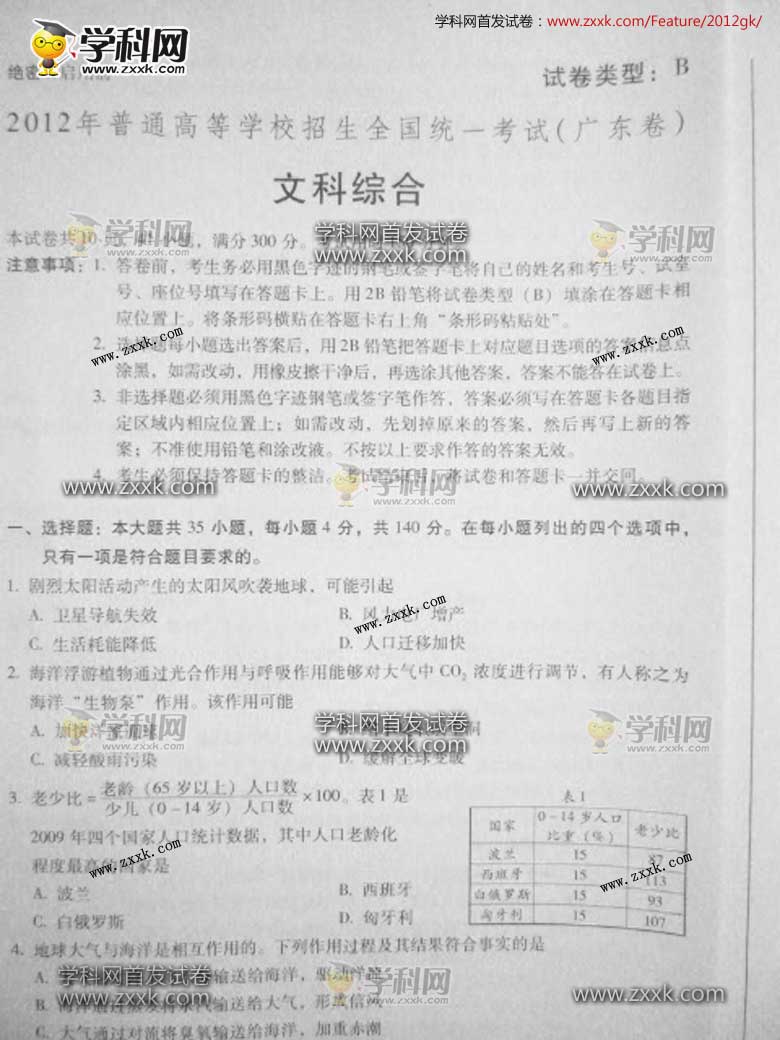 学科网首发试卷：www.zxxk.com/Feature/2012gk/
学科网
www.zxxk.com
绝密
试卷类型：B
2012年普通高等学校招生全国统一考试（广东卷）
文科综合
学科网首发试卷
www.zxxk.com
学科网
zxxk.com
学科网
zxxk.com
本试卷共10页，满分300分。
注意事项：1. 答卷前，考生务必用黑色字迹的钢笔或签字笔将自己的姓名和考生号、试室
号、座位号填写在答题卡上。用2B铅笔将试卷类型（B）填涂在答题卡相
应位置上。将条形码横贴在答题卡右上角“条形码粘贴处”。
2. 选择题每小题选出答案后，用2B铅笔把答题卡上对应题目选项的答案信息点
涂黑，如需改动，用橡皮擦干净后，再选涂其他答案，答案不能答在试卷上。
www.zxxk.com
www.zxxk.com
www.zxxk.com
3. 非选择题必须用黑色字迹钢笔或签字笔作答，答案必须写在答题卡各题目指
定区域内相应位置上；如需改动，先划掉原来的答案，然后再写上新的答
案；不准使用铅笔和涂改液。不按以上要求作答的答案无效。
4. 考生必须保持答题卡的整洁。考试结束后，将试卷和答题卡一并交回。
www.zxxk.com
学科网
zxxk.com
www.zxxk.com
一、选择题：本大题共35小题，每小题4分，共140分。在每小题列出的四个选项中，
只有一项是符合题目要求的。
1. 剧烈太阳活动产生的太阳风吹袭地球，可能引起
A. 卫星导航失效 B. 风力电厂增产
C. 生活耗能降低 D. 人口迁移加快
www.zxxk.com
2. 海洋浮游植物通过光合作用与呼吸作用能够对大气中CO₂浓度进行调节，有人称之为
海洋“生物泵”作用。该作用可能
A.
学科网
zxxk.com
学科网首发试卷
www.zxxk.com
学科网
zxxk.com
C. 减轻酸雨污染 D. 缓解全球变暖
3. 老少比=老龄（65岁以上）人口数/少儿（0-14岁）人口数×100。表1是
2009年四个国家人口统计数据，其中人口老龄化
程度最高的国家是
A. 波兰 B. 西班牙
C. 白俄罗斯 D. 匈牙利
www.zxxk.com
表1
国家 0-14岁人口比重（%） 老少比
波兰 15 87
西班牙 15 113
白俄罗斯 15 93
匈牙利 15 107
www.zxxk.com
4. 地球大气与海洋是相互作用的。下列作用过程及其结果符合事实的是
A. 输送给海洋，驱动洋流
B. 输送给大气，形成信风
C. 大气通过对流将臭氧输送给海洋，加重赤潮
学科网首发试卷
www.zxxk.com
学科网
www.zxxk.com
学科网首发试卷
www.zxxk.com